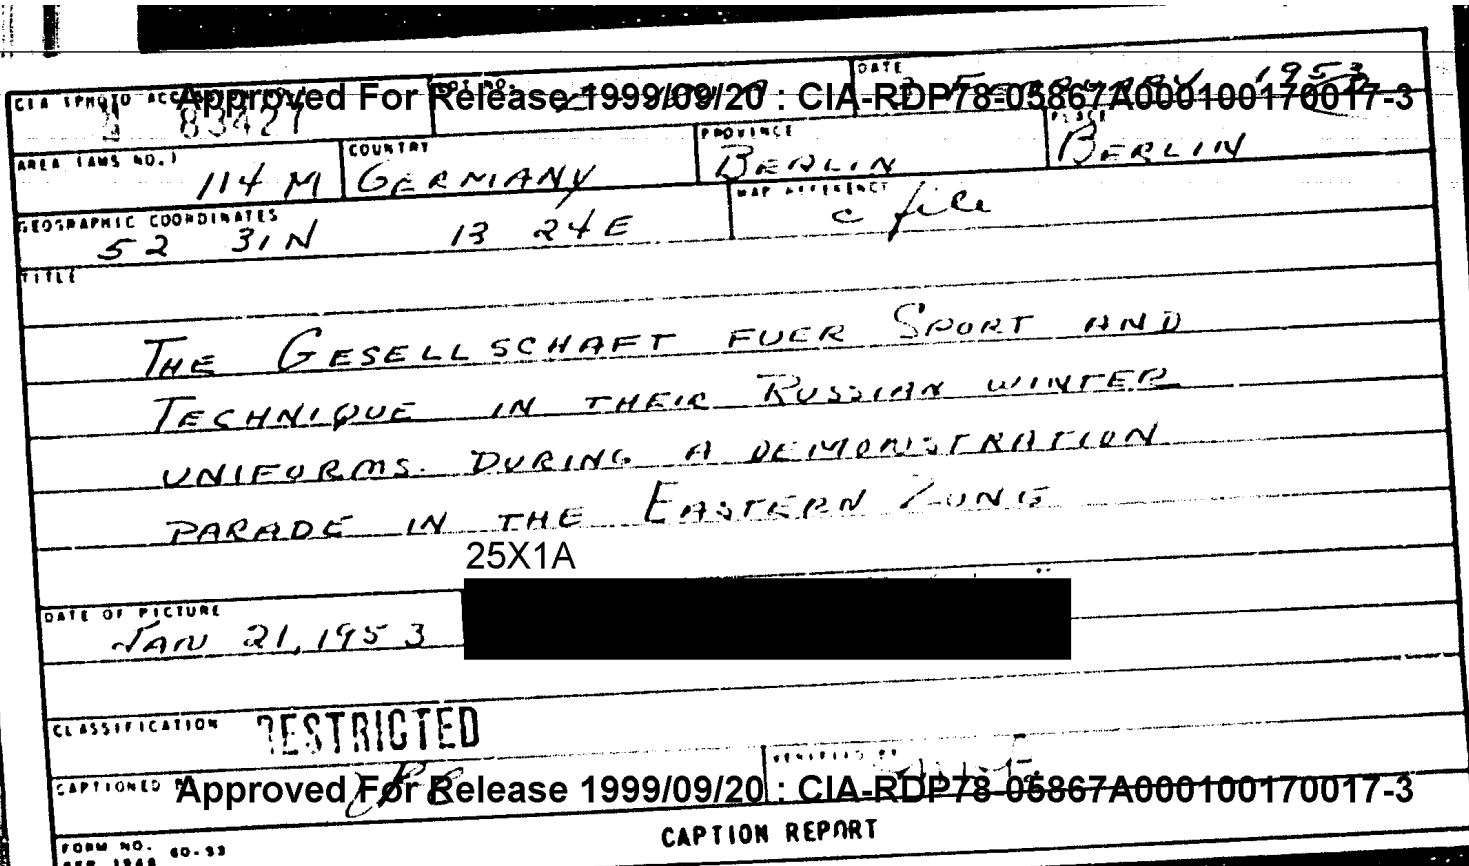 Approved For Release 1999/09/20 : CIA-RDP78-05867A000100170017-3
CIA (PHOTO ACC
83427
LOT NO.
DATE
FEBRUARY 1953
AREA (AMS NO.)
114 M
COUNTRY
GERMANY
PROVINCE
BERLIN
PLACE
BERLIN
GEOGRAPHIC COORDINATES
52 31N 13 24E
MAP REFERENCE
c file
TITLE
THE GESELLSCHAFT FUER SPORT AND
TECHNIQUE IN THEIR RUSSIAN WINTER
UNIFORMS. DURING A DEMONSTRATION
PARADE IN THE EASTERN ZONE
25X1A
DATE OF PICTURE
JAN 21, 1953
CLASSIFICATION
RESTRICTED
CAPTIONED
VERIFIED BY
Approved For Release 1999/09/20 : CIA-RDP78-05867A000100170017-3
FORM NO. 60-93
SEP 1948
CAPTION REPORT